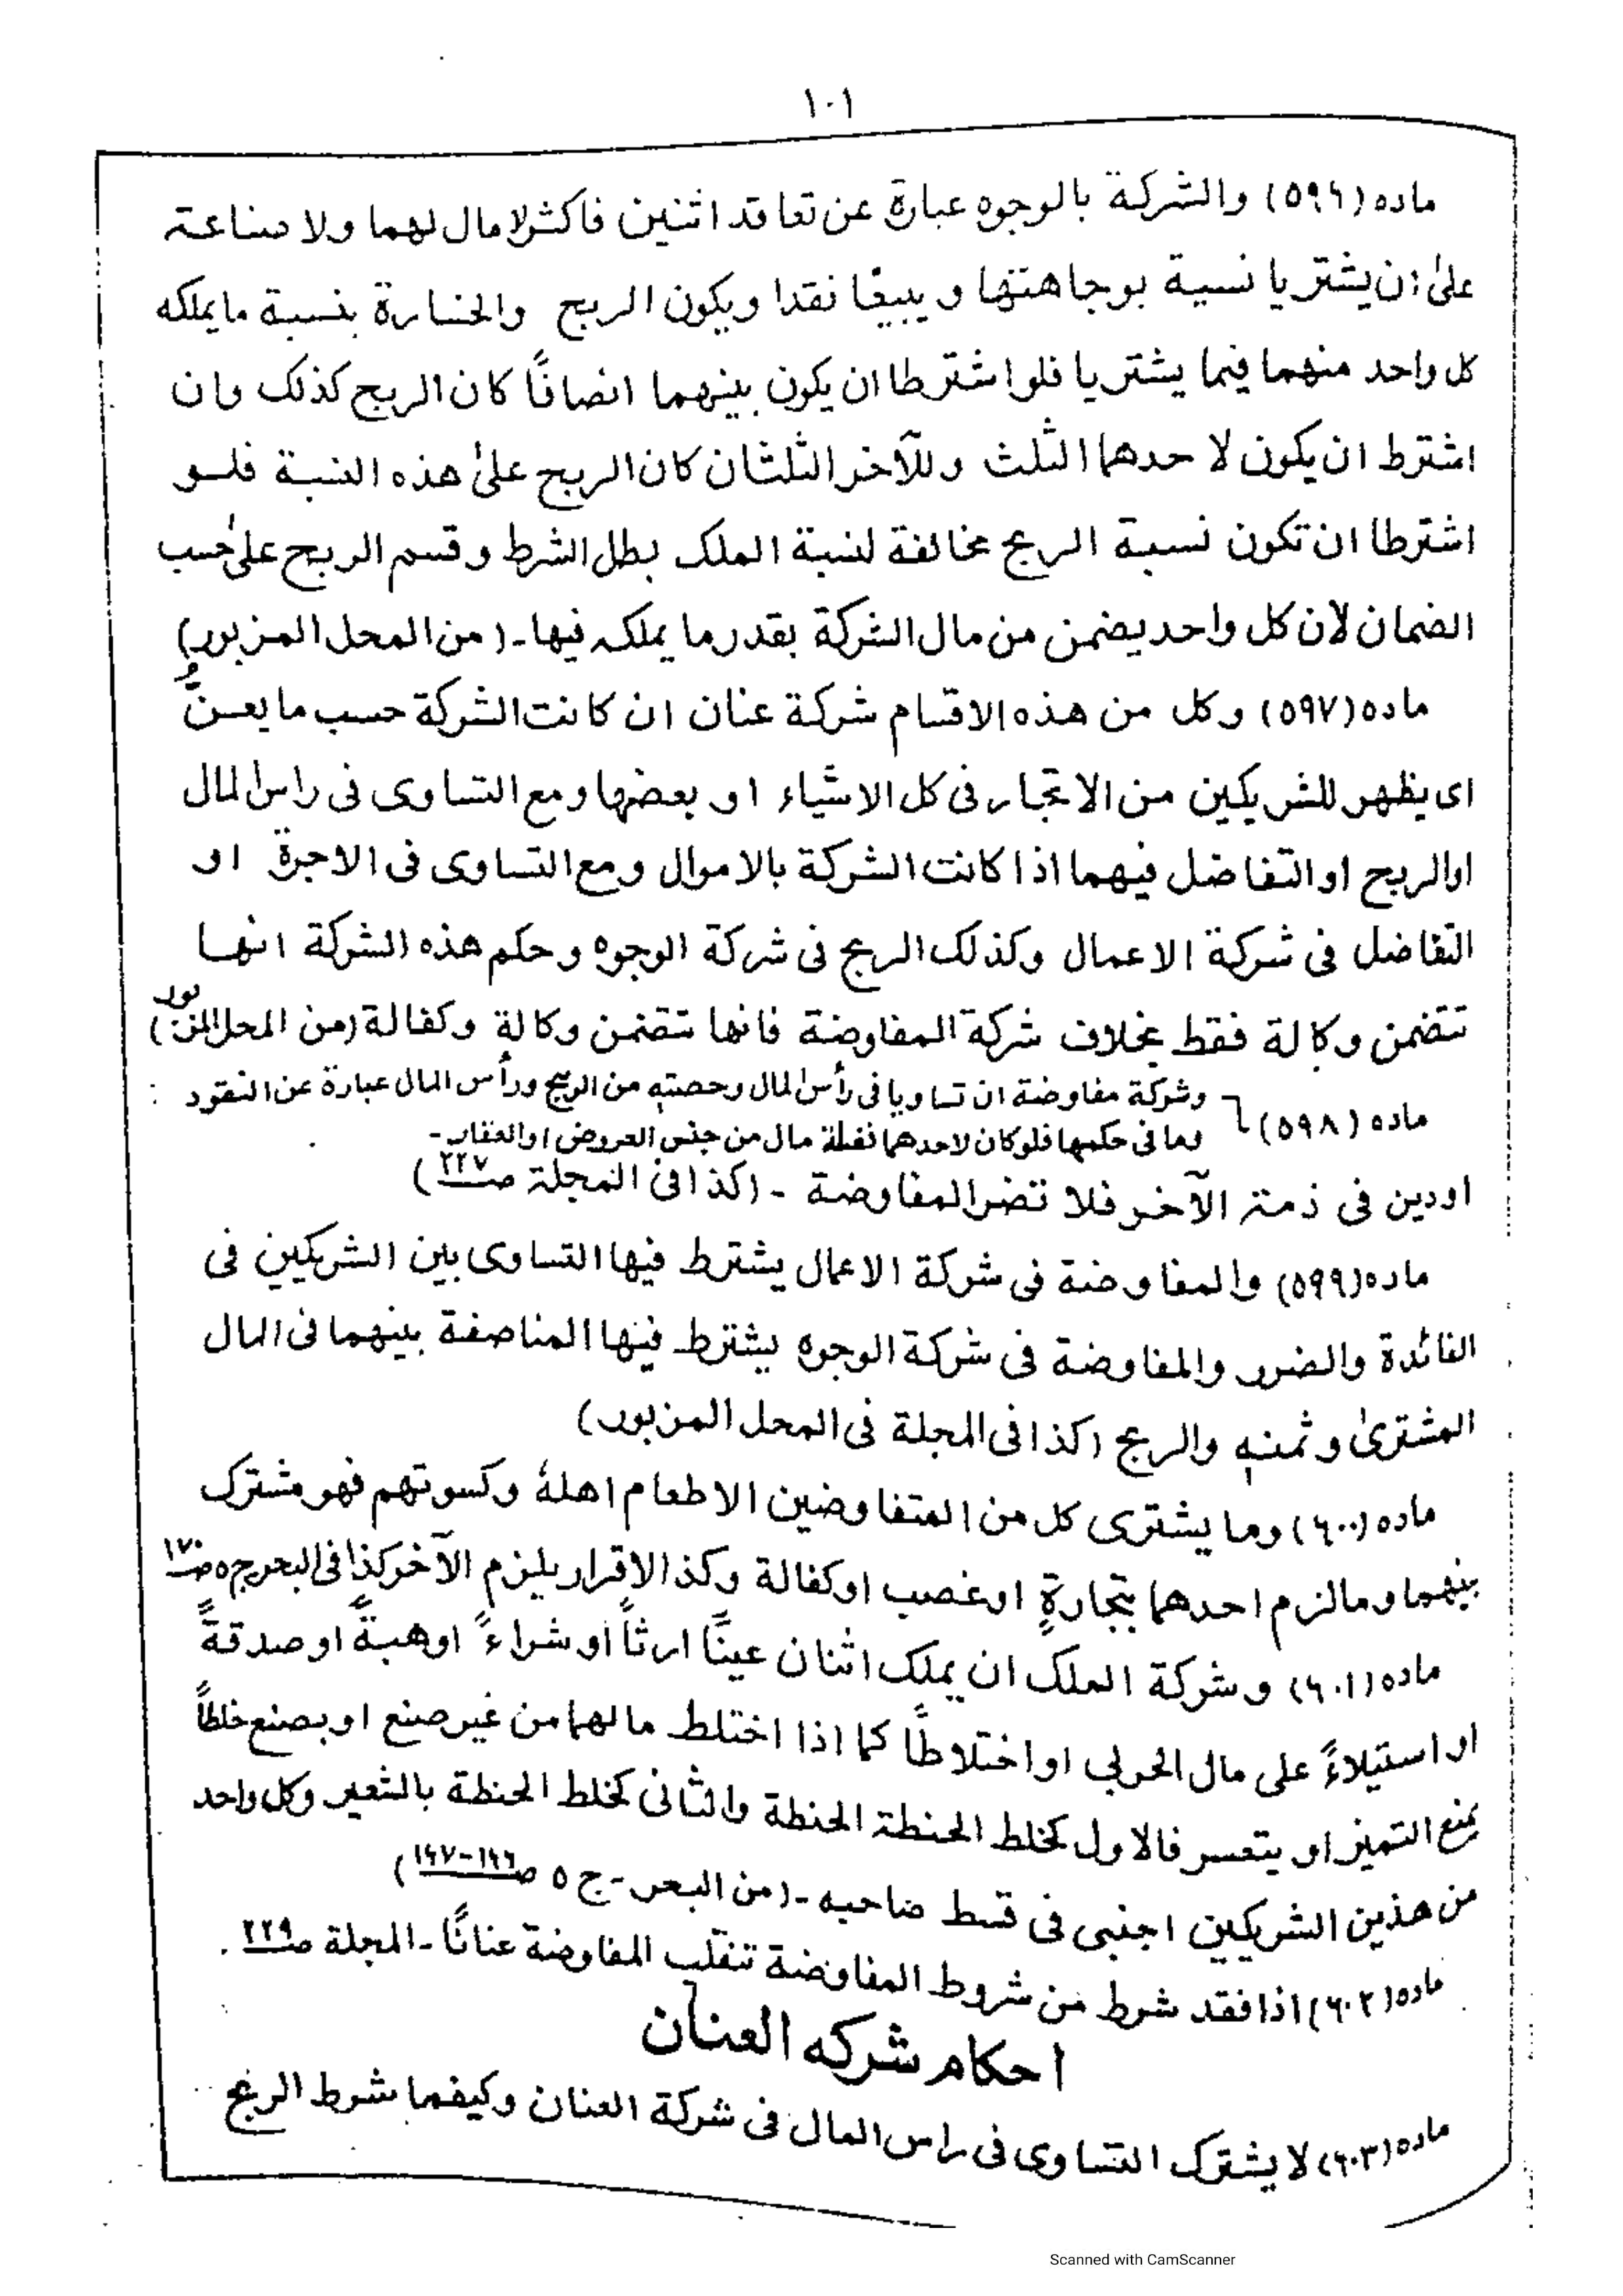 ١٠١
ماده (٥٩٦) والشركة بالوجوه عبارة عن تعاقد اثنين فاكثر لا مال لهما ولا صناعة
علىٰ ان يشتريا نسية بوجاهتها و يبيعًا نقدا ويكون الربح والخسارة بنسبة ما يملكه
كل واحد منهما فيما يشتريا فلو اشترطا ان يكون بينهما انصافًا كان الربح كذلك وان
اشترط ان يكون لاحدهما الثلث وللآخر الثلثان كان الربح علىٰ هذه النسبة فلو
اشترطا ان تكون نسبة الربح مخالفة لنسبة الملك بطل الشرط وقسم الربح علىٰ حسب
الضمان لان كل واحد يضمن من مال الشركة بقدر ما يملكہ فيها ـ (من المحل المزبور)
ماده (٥٩٧) وكل من هذه الاقسام شركة عنان ان كانت الشركة حسب ما يعنُّ
اى يظهر للشريكين من الاتجار فى كل الاشياء او بعضها ومع التساوى فى راس المال
اوالربح او التفاضل فيهما اذا كانت الشركة بالاموال ومع التساوى فى الاجرة او
التفاضل فى شركة الاعمال وكذلك الربح فى شركة الوجوه وحكم هذه الشركة انها
تتضمن وكالة فقط بخلاف شركة المفاوضة فانها تتضمن وكالة وكفالة (من المحل المزبور)
ماده (٥٩٨) وشركة مفاوضة ان تساويا فى رأس المال وحصتہ من الربح ورأس المال عبارة عن النقود
وما فى حكمها فلو كان لاحدهما فضلة مال من جنس العروض او العقار ـ
اودين فى ذمة الآخر فلا تضر المفاوضة ـ (كذا فى المجلة صـ٢٢٧)
ماده (٥٩٩) والمفاوضة فى شركة الاعمال يشترط فيها التساوى بين الشريكين فى
الفائدة والضرر والمفاوضة فى شركة الوجوه يشترط فيها المناصفة بينهما فى المال
المشترىٰ وثمنہ والربح (كذا فى المجلة فى المحل المزبور)
ماده (٦٠٠) وما يشترى كل من المتفاوضين الا طعام اهلهٗ وكسوتهم فهو مشترك
بينهما وما لزم احدهما بتجارةٍ او غصب او كفالة وكذ الاقرار يلزم الآخر كذا فى البحر ج٥ صـ١٧٠
ماده (٦٠١) وشركة الملك ان يملك اثنان عينًا ارثًا أو شراءً اوهبةً او صدقةً
او استيلاءً على مال الحربى او اختلاطًا كما اذا اختلط مالهما من غير صنع او بصنع خلطًا
يمنع التميز او يتعسر فالاول كخلط الحنطة الحنطة والثانى كخلط الحنطة بالشعير وكل واحد
من هذين الشريكين اجنبى فى قسط صاحبه ـ (من البحر ـ ج ٥ صـ١٦٦-١٦٧)
ماده (٦٠٢) اذا فقد شرط من شروط المفاوضة تنقلب المفاوضة عنانًا ـ المجلة صـ٢٢٩ .
احكام شركه العنان
ماده (٦٠٣) لا يشترك التساوى فى راس المال فى شركة العنان وكيفما شرط الربح
Scanned with CamScanner